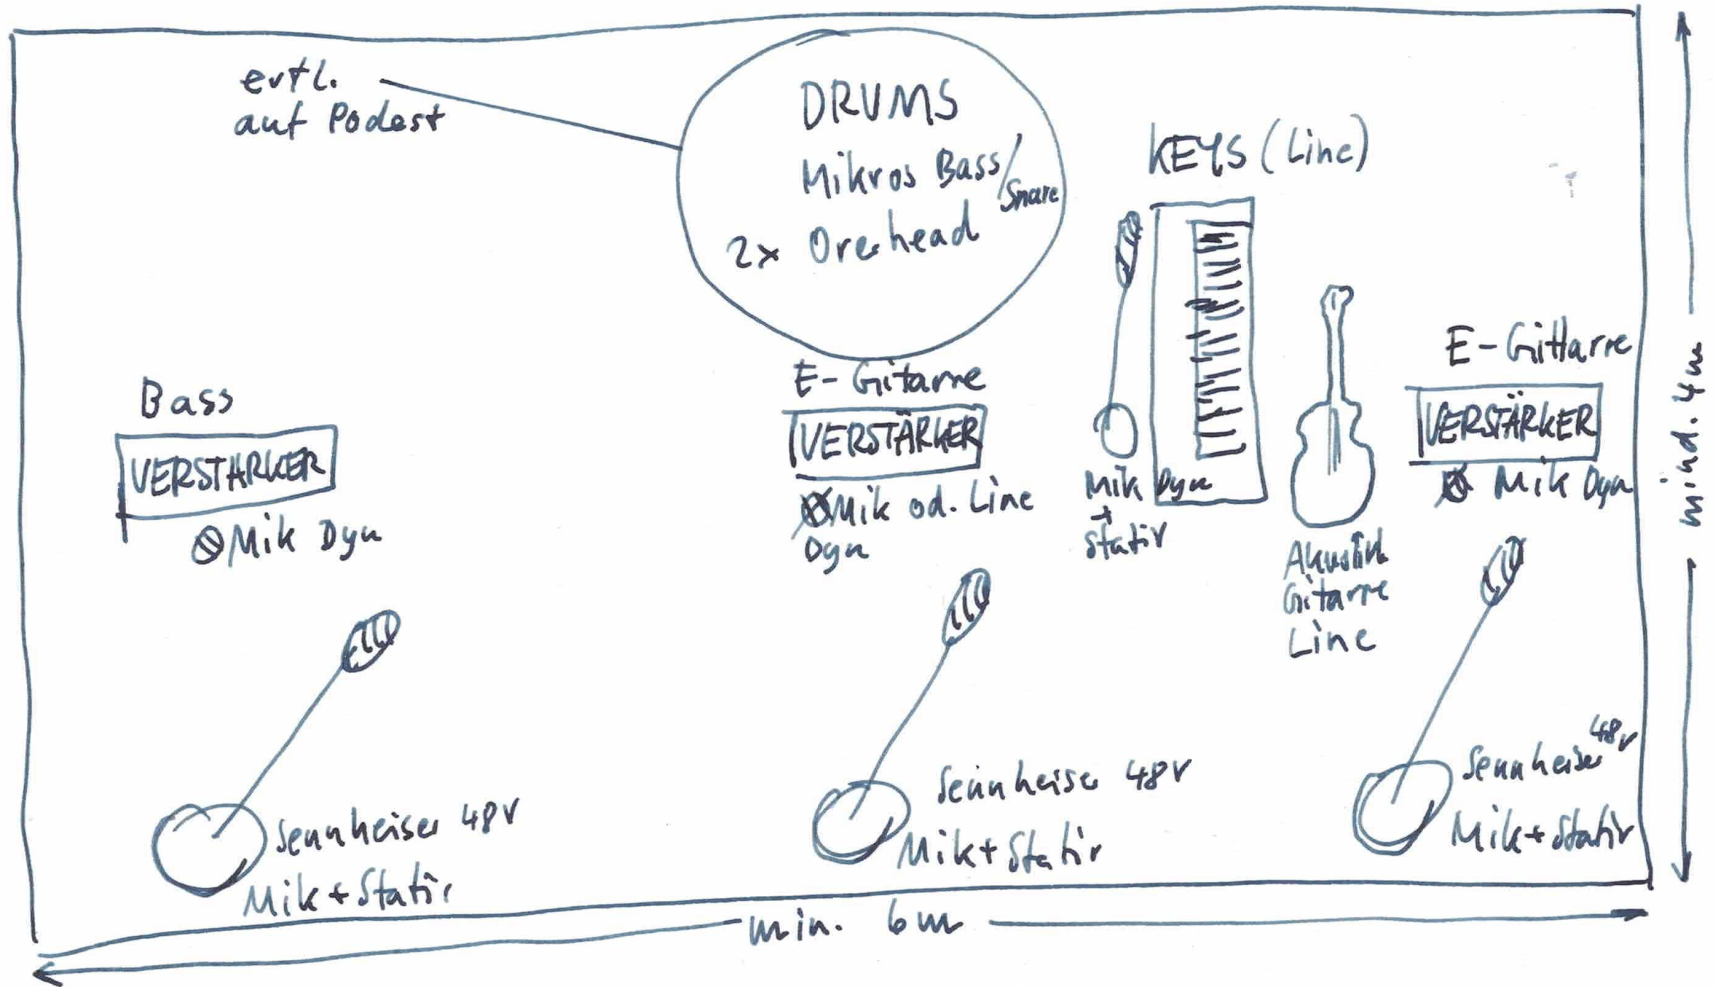 evtl.
auf Podest
DRUMS
Mikros Bass/Snare
2x Overhead
KEYS (Line)
Bass
VERSTÄRKER
Mik Dyn
E-Gitarre
VERSTÄRKER
Mik od. Line
Dyn
Mik Dyn
+
Stativ
Akustik
Gitarre
Line
E-Gittarre
VERSTÄRKER
Mik Dyn
Sennheiser 48V
Mik + Stativ
Sennheiser 48V
Mik + Stativ
Sennheiser 48V
Mik + Stativ
min. 6m
mind. 4m